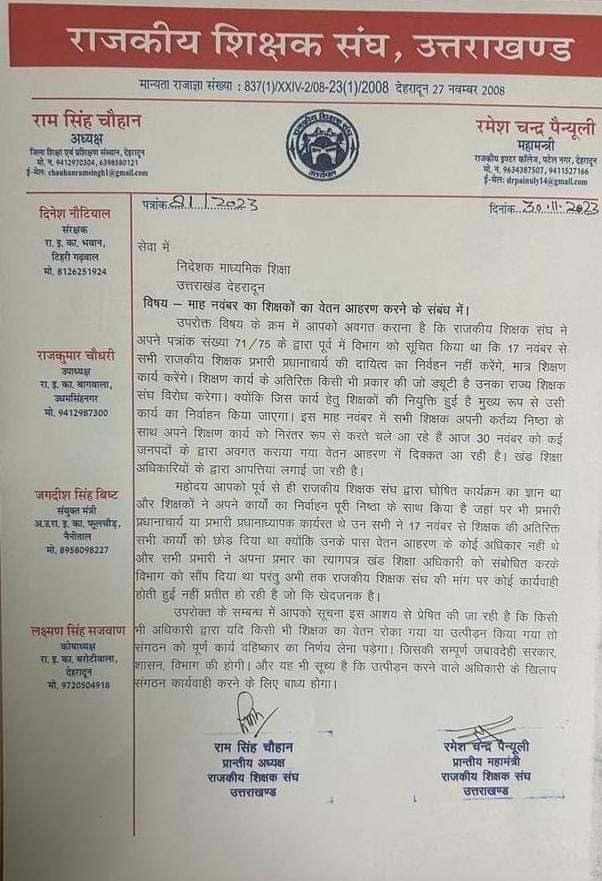 राजकीय शिक्षक संघ, उत्तराखण्ड
मान्यता राजाज्ञा संख्या : 837(1)/XXIV-2/08-23(1)/2008 देहरादून 27 नवम्बर 2008
राम सिंह चौहान
अध्यक्ष
जिला शिक्षा एवं प्रशिक्षण संस्थान, देहरादून
मो. न. 9412970304, 6398580121
ई-मेल: chauhanramsingh1@gmail.com
राजकीय शिक्षक संघ
उत्तराखण्ड
रमेश चन्द्र पैन्यूली
महामन्त्री
राजकीय इण्टर कॉलेज, पटेल नगर, देहरादून
मो. न. 9634387507, 9411527166
ई-मेल: drpainuly14@gmail.com
दिनेश नौटियाल
संरक्षक
रा. इ. का. भवान,
टिहरी गढ़वाल
मो. 8126251924
राजकुमार चौधरी
उपाध्यक्ष
रा. इ. का. बागवाला,
उधमसिंहनगर
मो. 9412987300
जगदीश सिंह बिष्ट
संयुक्त मंत्री
अ.उ.रा. इ. का. फूलचौड़,
नैनीताल
मो. 8958098227
लक्ष्मण सिंह सजवाण
कोषाध्यक्ष
रा. इ. का. बरोटीवाला,
देहरादून
मो. 9720504918
पत्रांक 81/2023
दिनांक 30.11.2023
सेवा में
निदेशक माध्यमिक शिक्षा
उत्तराखंड देहरादून
विषय – माह नवंबर का शिक्षकों का वेतन आहरण करने के संबंध में।
उपरोक्त विषय के क्रम में आपको अवगत कराना है कि राजकीय शिक्षक संघ ने
अपने पत्रांक संख्या 71/75 के द्वारा पूर्व में विभाग को सूचित किया था कि 17 नवंबर से
सभी राजकीय शिक्षक प्रभारी प्रधानाचार्य की दायित्व का निर्वहन नहीं करेंगे, मात्र शिक्षण
कार्य करेंगे। शिक्षण कार्य के अतिरिक्त किसी भी प्रकार की जो ड्यूटी है उनका राज्य शिक्षक
संघ विरोध करेगा। क्योंकि जिस कार्य हेतु शिक्षकों की नियुक्ति हुई है मुख्य रूप से उसी
कार्य का निर्वाहन किया जाएगा। इस माह नवंबर में सभी शिक्षक अपनी कर्तव्य निष्ठा के
साथ अपने शिक्षण कार्य को निरंतर रूप से करते चले आ रहे हैं आज 30 नवंबर को कई
जनपदों के द्वारा अवगत कराया गया वेतन आहरण में दिक्कत आ रही है। खंड शिक्षा
अधिकारियों के द्वारा आपत्तियां लगाई जा रही है।
महोदय आपको पूर्व से ही राजकीय शिक्षक संघ द्वारा घोषित कार्यक्रम का ज्ञान था
और शिक्षकों ने अपने कार्यो का निर्वाहन पूरी निष्ठा के साथ किया है जहां पर भी प्रभारी
प्रधानाचार्य या प्रभारी प्रधानाध्यापक कार्यरत थे उन सभी ने 17 नवम्बर से शिक्षक की अतिरिक्त
सभी कार्यो को छोड़ दिया था क्योंकि उनके पास वेतन आहरण के कोई अधिकार नहीं थे
और सभी प्रभारी ने अपना प्रभार का त्यागपत्र खंड शिक्षा अधिकारी को संबोधित करके
विभाग को सौंप दिया था परंतु अभी तक राजकीय शिक्षक संघ की मांग पर कोई कार्यवाही
होती हुई नहीं प्रतीत हो रही है जो कि खेदजनक है।
उपरोक्त के सम्बन्ध में आपको सूचना इस आशय से प्रेषित की जा रही है कि किसी
भी अधिकारी द्वारा यदि किसी भी शिक्षक का वेतन रोका गया या उत्पीड़न किया गया तो
संगठन को पूर्ण कार्य वहिष्कार का निर्णय लेना पड़ेगा। जिसकी सम्पूर्ण जबावदेही सरकार,
शासन, विभाग की होगी। और यह भी सूच्य है कि उत्पीड़न करने वाले अधिकारी के खिलाप
संगठन कार्यवाही करने के लिए बाध्य होगा।
राम सिंह चौहान
प्रान्तीय अध्यक्ष
राजकीय शिक्षक संघ
उत्तराखण्ड
रमेश चन्द्र पैन्यूली
प्रान्तीय महामंत्री
राजकीय शिक्षक संघ
उत्तराखण्ड